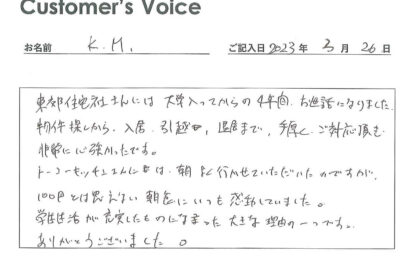 Customer's Voice
お名前 K.M. ご記入日 2023 年 3 月 26 日
東都住宅社さんには 大学入ってからの4年間、お世話になりました。
物件探しから、入居、引越中、退居まで、手厚くご対応頂き
非常に心強かったです。
トーコーキッチンさんには、朝よく行かせていただいたのですが、
100円とは思えない朝食にいつも感動していました。
学生生活が充実したものになった大きな理由の一つです。
ありがとうございました。